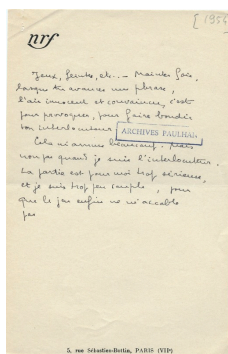 [1954
nrf
Jeux, feintes, etc... — Maintes fois,
lorsque tu avances une phrase,
l'air innocent et convaincu, c'est
pour provoquer, pour faire bondir
ton interlocuteur.
ARCHIVES PAULHAN
Cela m'amuse beaucoup. Mais
non pas quand je suis l'interlocuteur.
La partie est pour moi trop sérieuse,
et je suis trop peu simple, pour
que le jeu enfin ne m'accable
pas
5, rue Sébastien-Bottin, PARIS (VIIe)